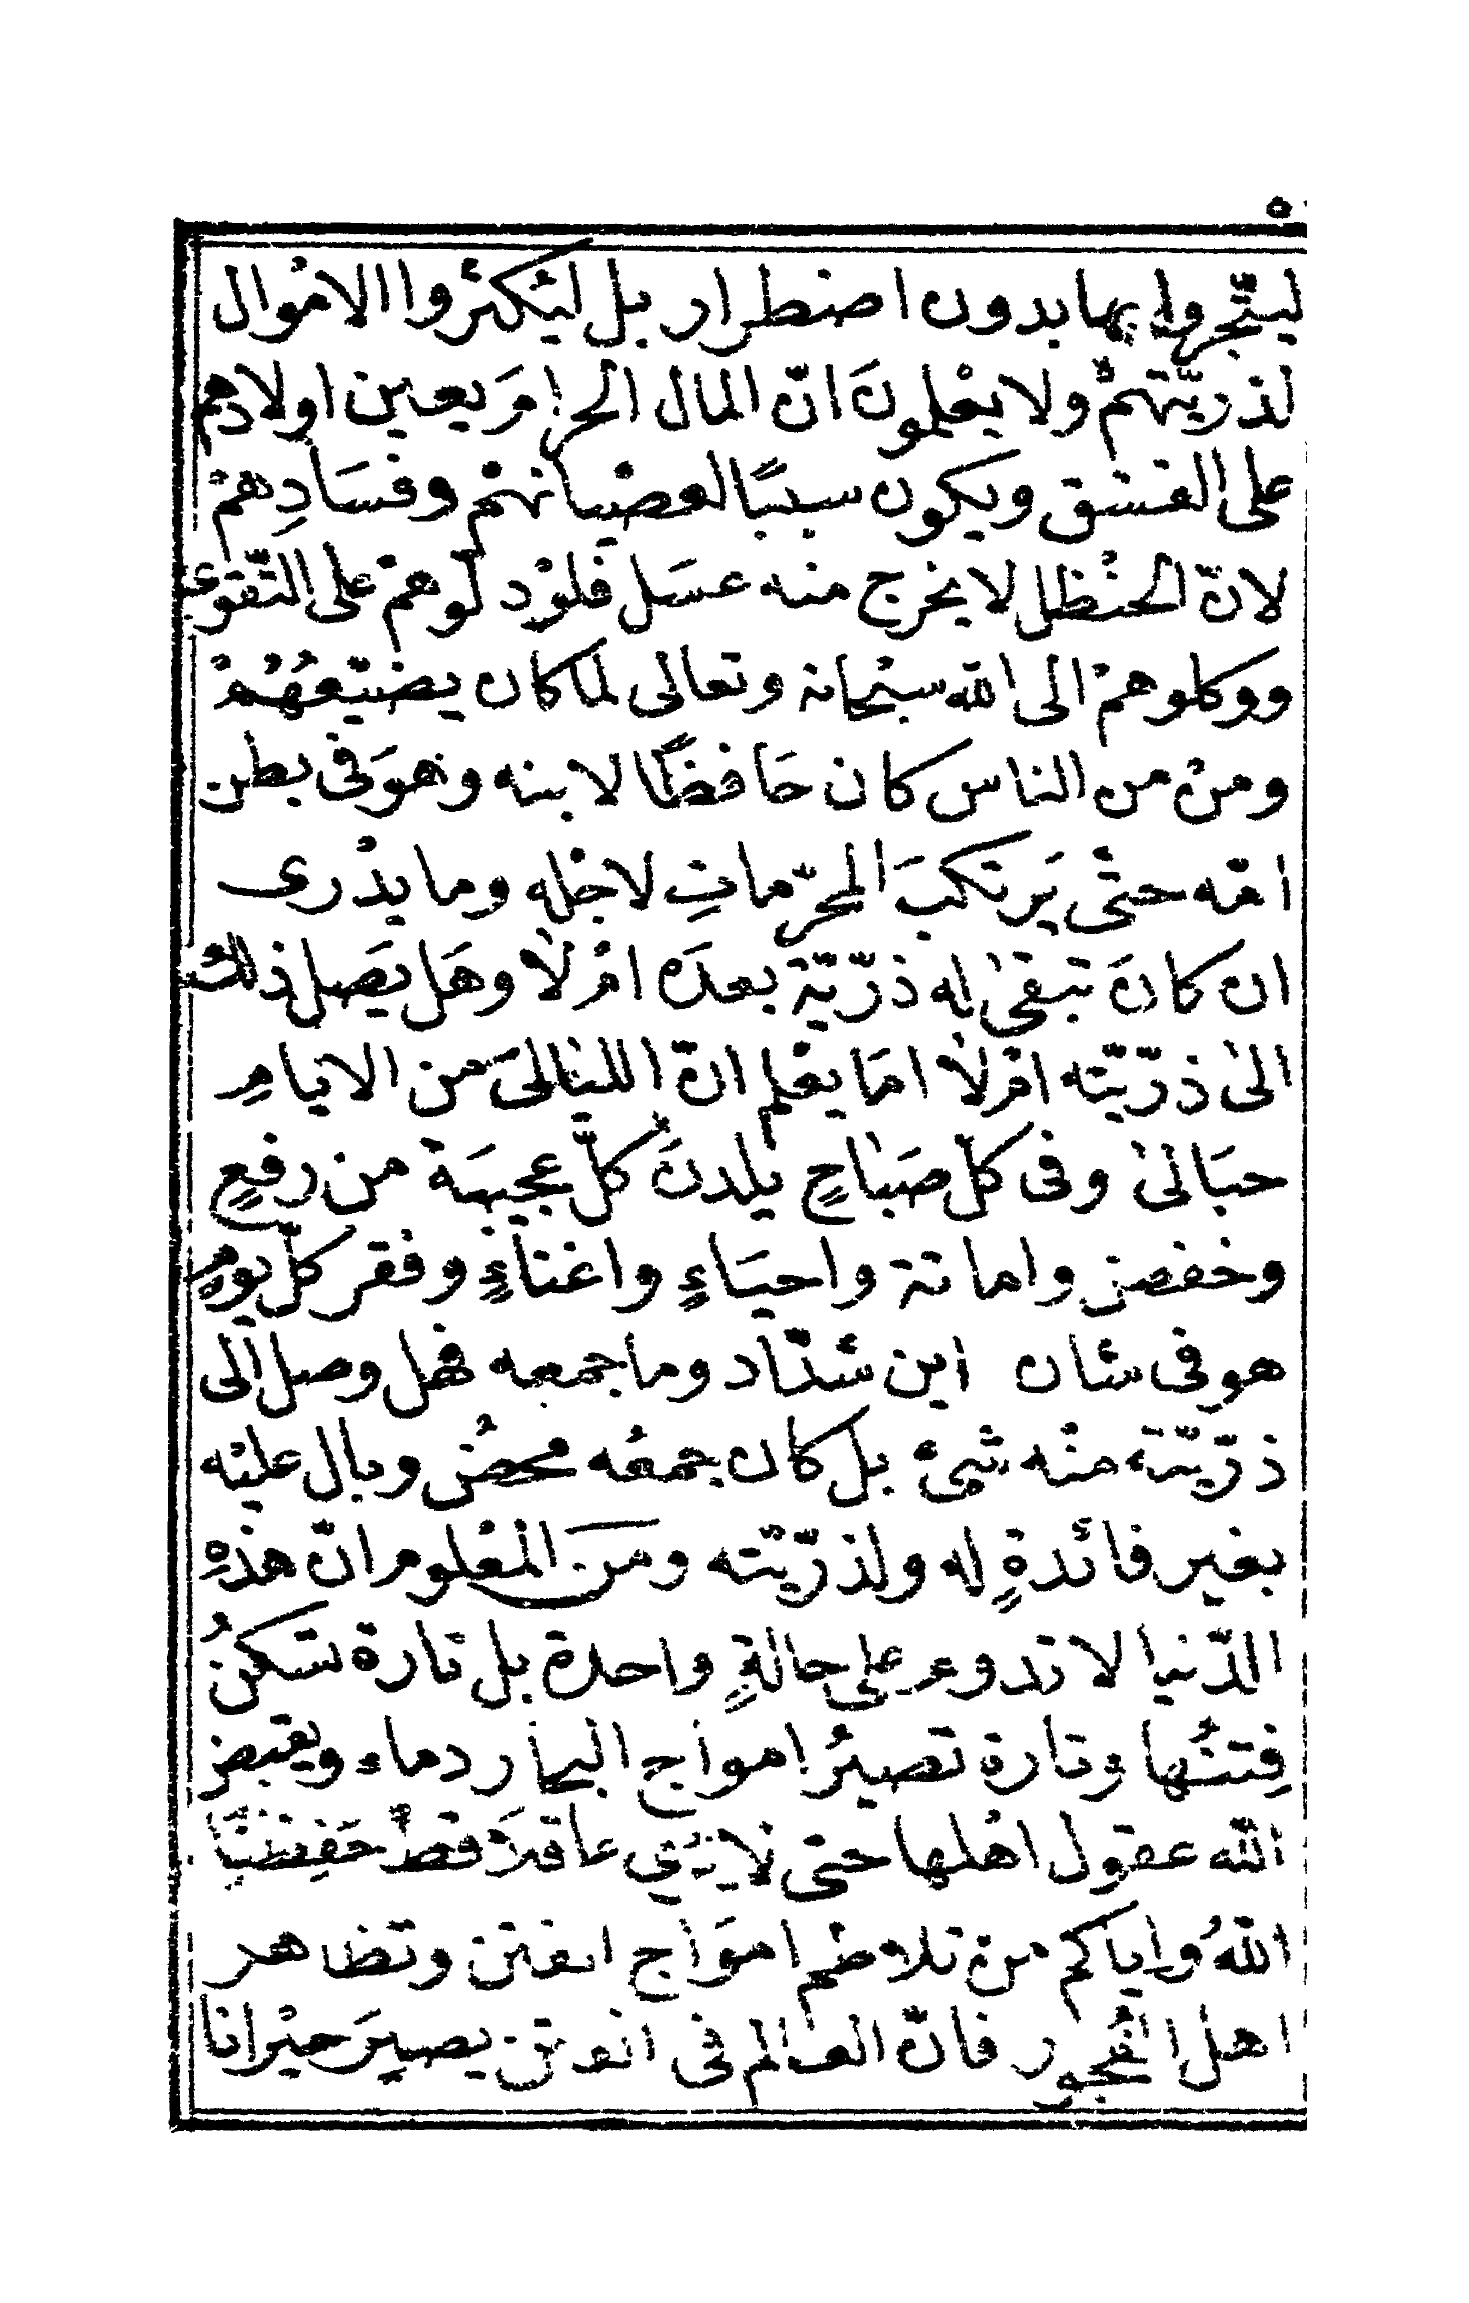 ليتّجروا بها بدون اضطرار بل ليُكثرُوا الامْوال
لذريّتهمْ ولا يعْلمونَ انّ المال الحرامَ يعين اولادهم
على الفسْق ويكون سببًا لعصْيانهمْ وفسَادِهمْ
لانّ الحنْظل لا يخرج منه عسَل فلوْ دلّوهمْ على التّقوى
ووكلوهمْ الى الله سبْحانه وتعالى لما كان يضيّعهُمْ
ومنْ من الناس كان حَافظًا لابنه وهوَ فى بطن
امّه حتّى يَرتكبَ المحرّماتِ لاجْله وما يدْرى
ان كانَ تبقىٰ له ذرّيّة بعدَه امْ لاٰ وهَل يصَل ذلك
الىٰ ذرّيّته امْ لاٰ امَا يعْلم انّ اللّيالىَ من الايّامِ
حبَالىٰ وفى كل صَباحٍ يلدنَ كلّ عجيبَة من رفعٍ
وخفض واماتة واحيَاءٍ واغناءٍ وفقر كلّ يومٍ
هو فى شأن اين شدّاد وما جمعه فهل وصل الى
ذرّيّته منْه شئ بل كان جمعُه محضُ وبال عليْه
بغير فائدةٍ له ولذرّيّته ومَن المعْلوم انّ هذهِ
الدّنيا لا تدوم على حالةٍ واحدة بل تارة تسْكنُ
فِتنُها وتارة تصيرُ امواج البحار دماء ويقبض
الله عقول اهْلها حتى لا يُرٰي عاقلاَ قطّ حَفِظنَا
اللهُ وايّاكم من تلاطم امْوَاج الفتن وتظاهر
اهْل الفُجور فانّ العالم فى الفتن يصيرَ حيْرانا